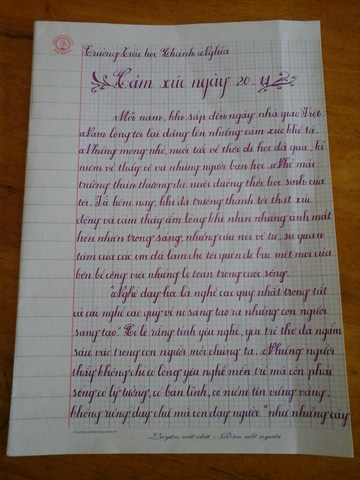 Trường Tiểu học Chánh Nghĩa
Cảm xúc ngày 20-11
Mỗi năm, khi sắp đến ngày nhà giáo Việt
Nam lòng tôi lại dâng lên những cảm xúc khó tả.
Những mong nhớ, nuối trả về thời đi học đã qua, kỉ
niệm về thầy cô và những người bạn học. Nhớ mái
trường thân thương đã nuôi dưỡng thời học sinh của
tôi. Và hôm nay, khi đã trưởng thành tôi thật xúc
động và cảm thấy ấm lòng khi nhìn những ánh mắt
hồn nhiên trong sáng, những câu nói vô tư, sự quan
tâm của các em đã làm cho tôi quên đi bao mệt mỏi của
bên bề công việc những lo toan trong cuộc sống.
"Nghề dạy học là nghề cao quý nhất trong tất
cả các nghề cao quý vì nó sáng tạo ra những con người
sáng tạo". Có lẽ rằng tình yêu nghề, yêu trẻ thơ đã ngấm
sâu vào trong con người mỗi chúng ta. Những người
thầy không chỉ có lòng yêu nghề mến trẻ mà còn phải
sống có lý tưởng, có bản lĩnh, có niềm tin vững vàng,
không riêng dạy chữ mà còn dạy người "như những cây
Luyện nét chữ - Rèn nết người